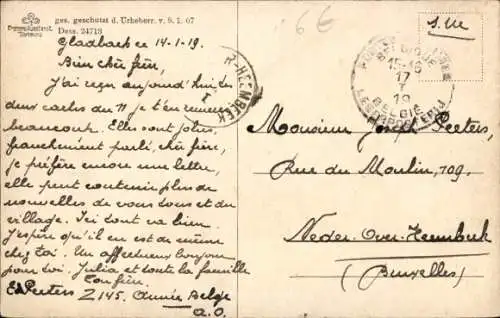 ges. geschutzt d. Urheberr. v. 9. 1. 07
Dess. 24713
6€
S.M
Gladbach ce 14-1-19.
Bien cher frère,
J'ai reçu aujourd'hui tes
deux cartes du 11 je t'en remercie
beaucoup. Elles sont jolies,
franchement parlé, cher frère,
je préfère encore une lettre,
elle peut contenir plus de
nouvelles de vous tous et du
village. Ici tout va bien.
J'espère qu'il en est de même
chez toi. Un affectueux bonjour
pour toi, Julia et toute la famille
Ton frère,
Ed Peeters Z 145. Armée Belge
A.O.
R-HEEMBEEK
BELGIQUE
15-16
17
I
19
BELGIE
Monsieur Joseph Peeters,
Rue du Moulin, 709.
Neder-Over-Heembeek
(Bruxelles)